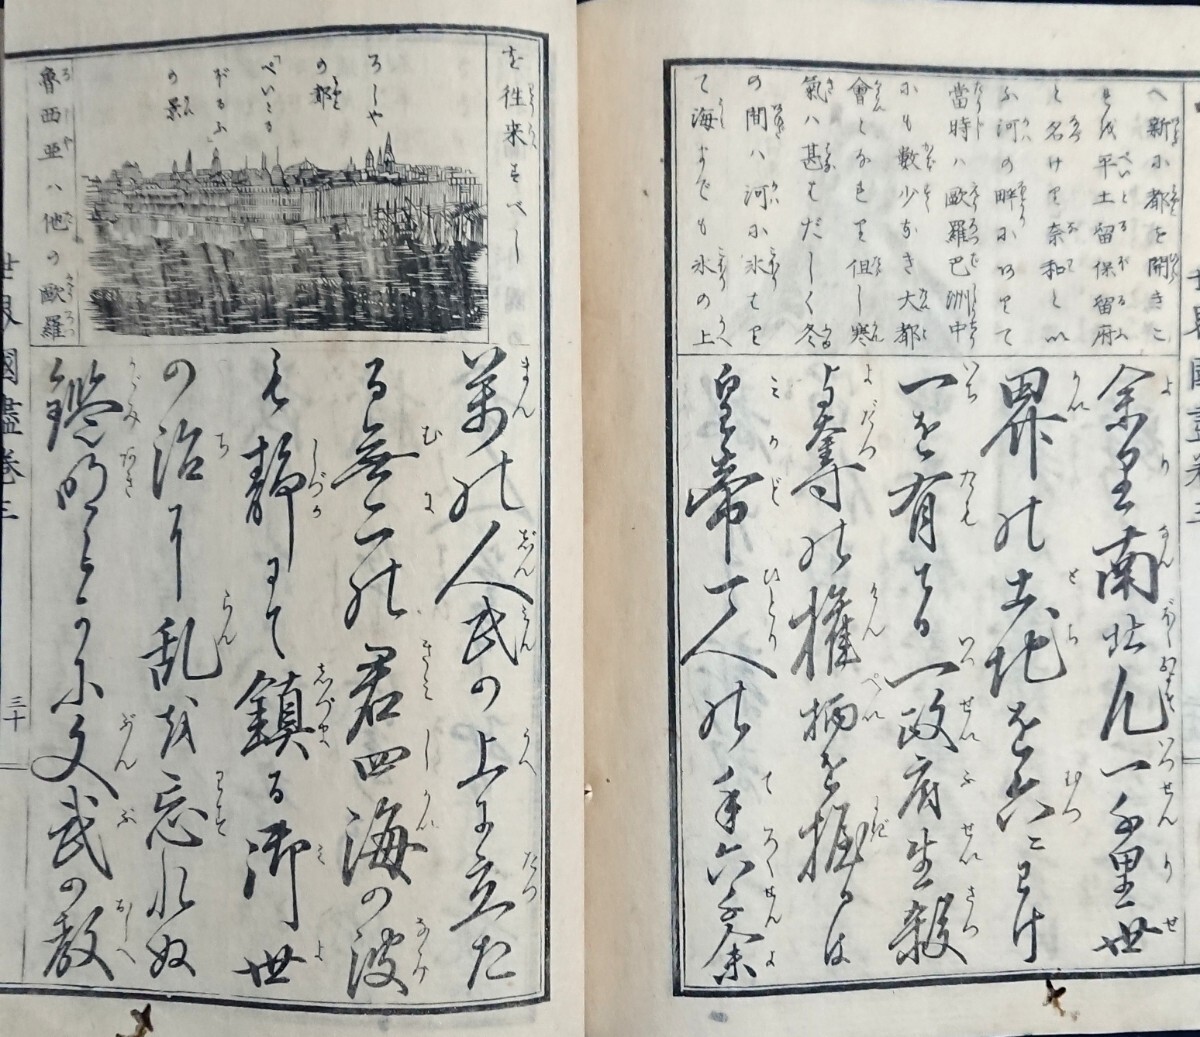 へ新に都を開きこ
れを平土留保留府
と名けり奈和とい
ふ河の畔にありて
當時ハ歐羅巴洲中
にも數少なき大都
會となれり但し寒
氣ハ甚はだしく冬
の間ハ河に氷はり
て海までも氷の上
余里南北凡一千里世
界の土地を六にわけ
一を有てる一政府生殺
与奪の権柄を握るは
皇帝一人の手六千余
を徃来すべし
ろしや
の都
「ぺいとる
ぼるふ」
の景
魯西亜ハ他の歐羅
萬の人民の上に立た
る無二の君四海の波
も静にて鎮る御世
の治に乱を忘れぬ
鑑明らかに文武の教
世界國盡巻三
三十